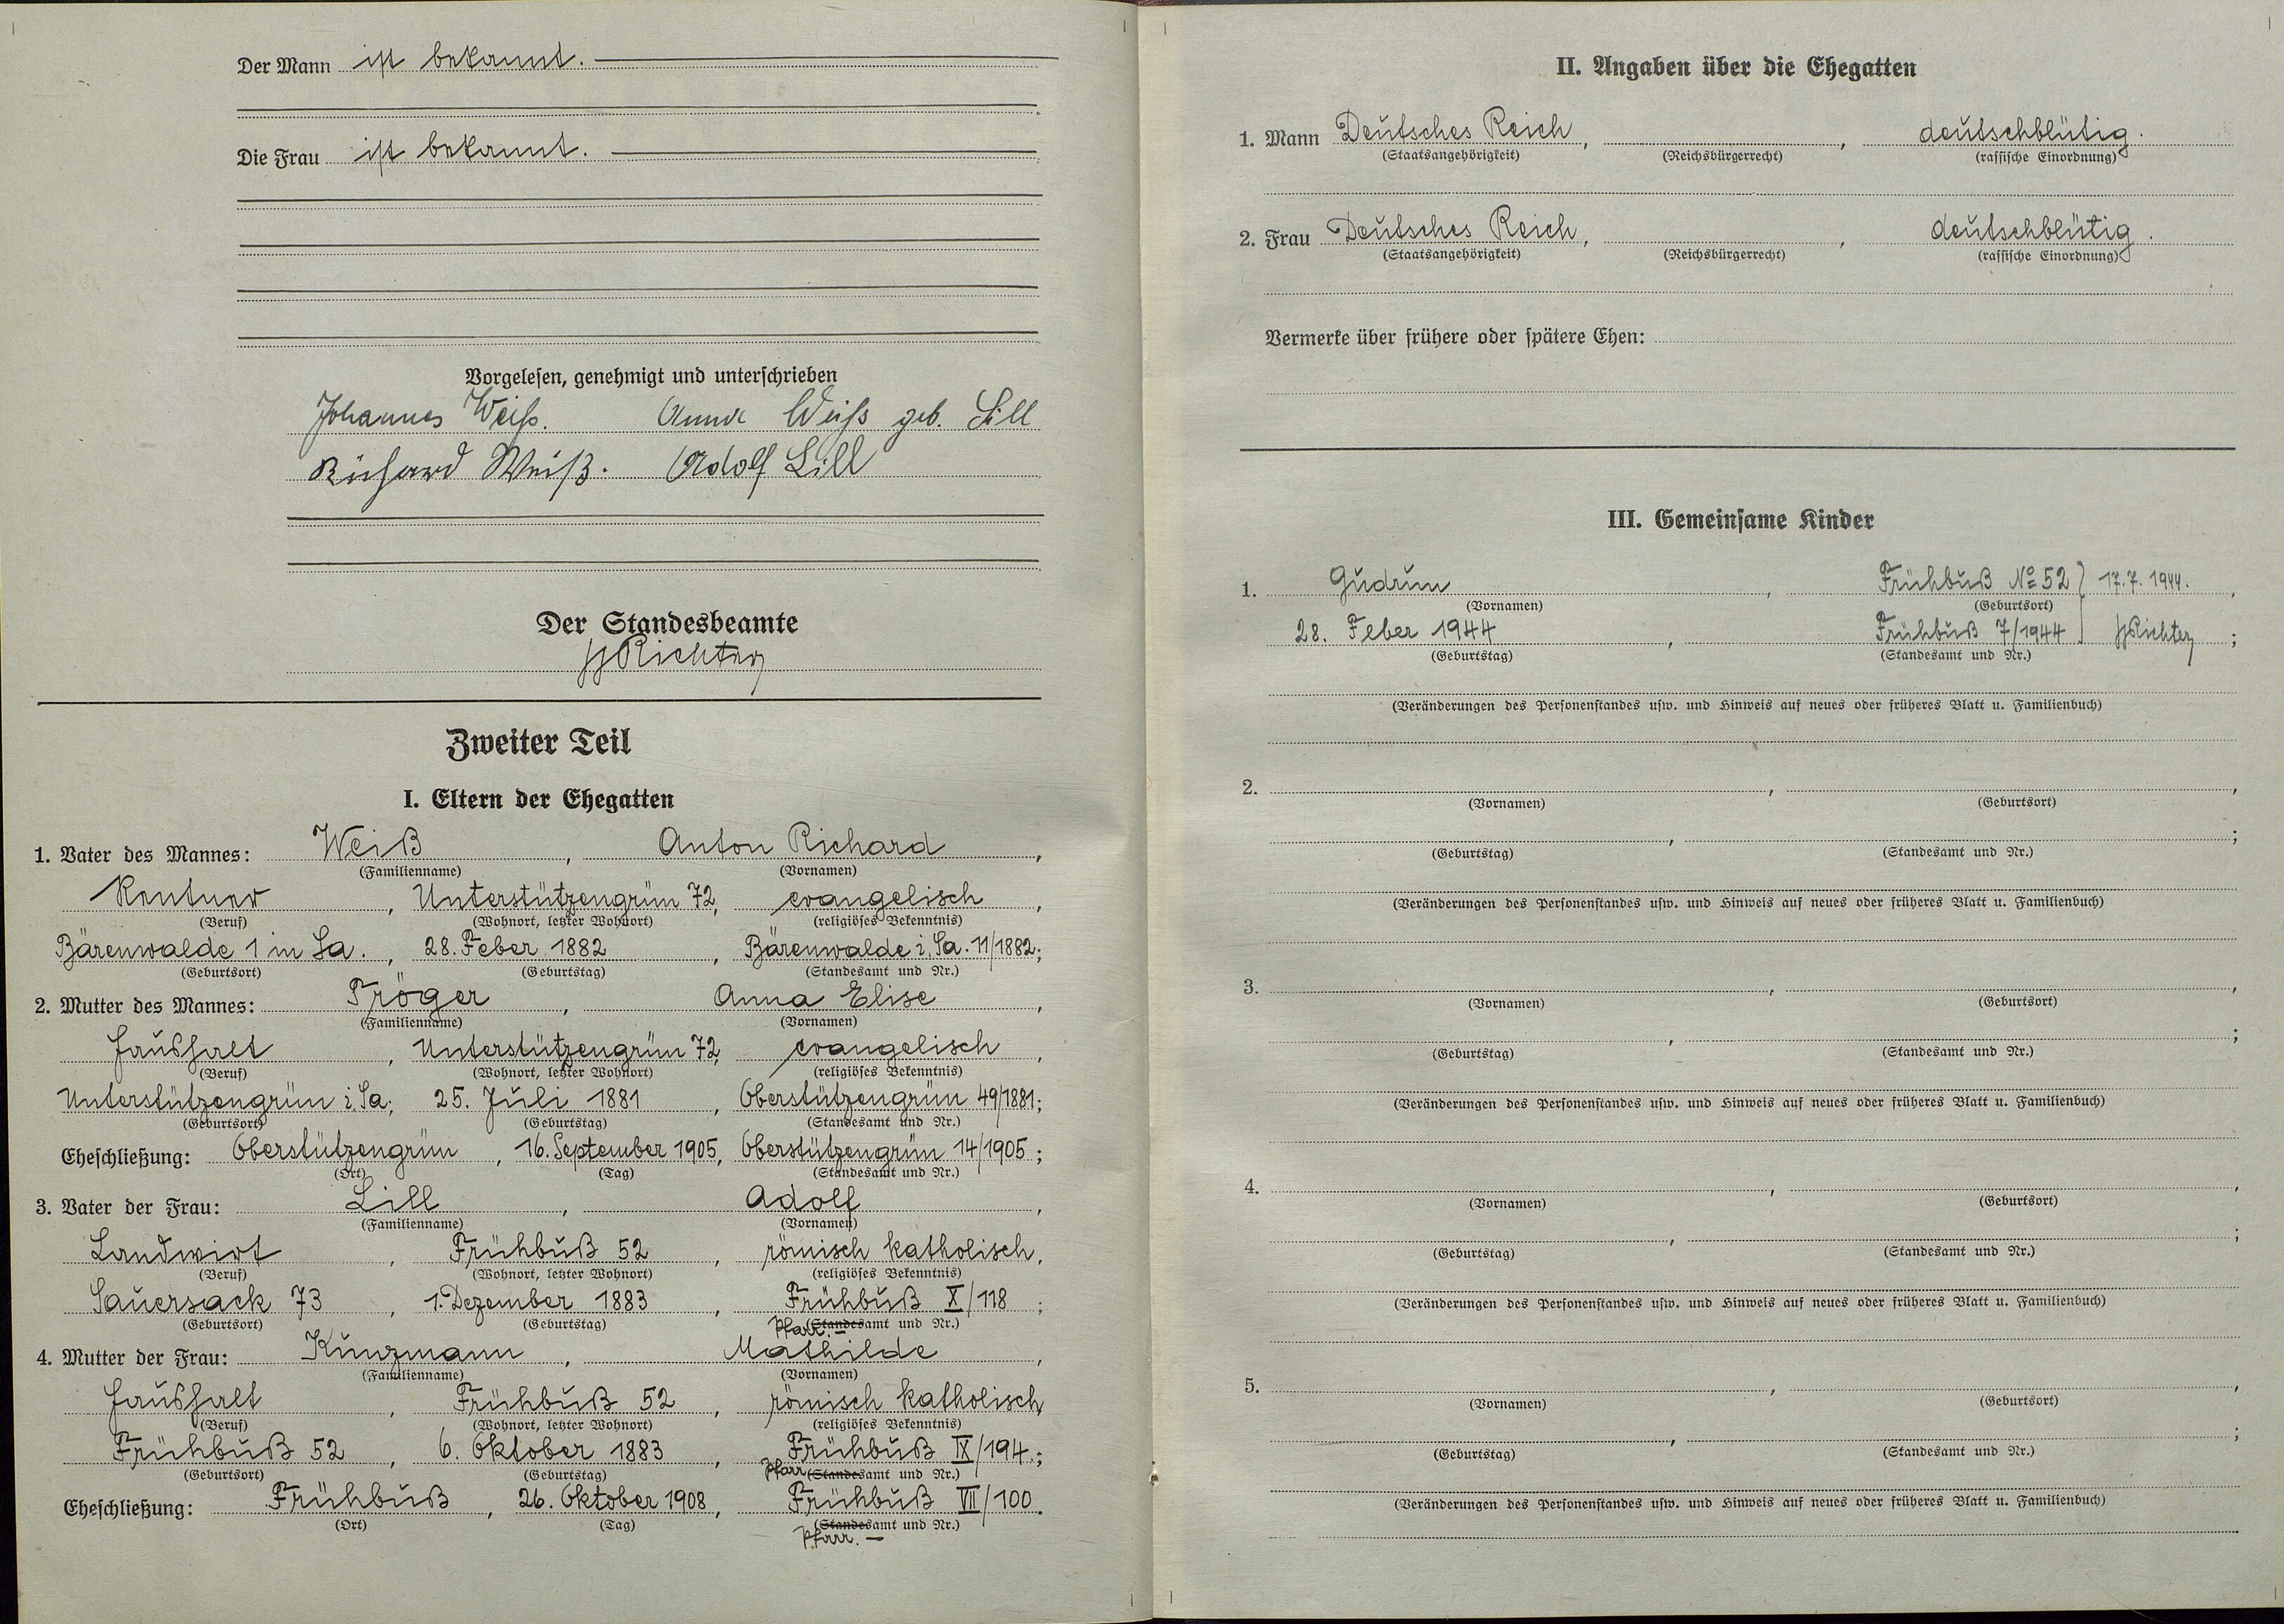 Der Mann ist bekannt.
Die Frau ist bekannt.
Vorgelesen, genehmigt und unterschrieben
Johannes Weiß. Anna Weiß geb. Lill
Richard Weiß. Adolf Lill
Der Standesbeamte
Richter
Zweiter Teil
I. Eltern der Ehegatten
1. Vater des Mannes: Weiß, Anton Richard,
(Familienname) (Vornamen)
Rentner, Unterstützengrün 72, evangelisch,
(Beruf) (Wohnort, letzter Wohnort) (religiöses Bekenntnis)
Bärenwalde 1 in Sa., 28. Feber 1882, Bärenwalde i. Sa. 11/1882;
(Geburtsort) (Geburtstag) (Standesamt und Nr.)
2. Mutter des Mannes: Tröger, Anna Elise,
(Familienname) (Vornamen)
Haushalt, Unterstützengrün 72, evangelisch,
(Beruf) (Wohnort, letzter Wohnort) (religiöses Bekenntnis)
Unterstützengrün i. Sa., 25. Juli 1881, Oberstützengrün 49/1881;
(Geburtsort) (Geburtstag) (Standesamt und Nr.)
Eheschließung: Oberstützengrün, 16. September 1905, Oberstützengrün 14/1905;
(Ort) (Tag) (Standesamt und Nr.)
3. Vater der Frau: Lill, Adolf,
(Familienname) (Vornamen)
Landwirt, Frühbuß 52, römisch katholisch,
(Beruf) (Wohnort, letzter Wohnort) (religiöses Bekenntnis)
Sauersack 73, 1. Dezember 1883, Frühbuß X/118;
(Geburtsort) (Geburtstag) Pfarr.- (Standesamt und Nr.)
4. Mutter der Frau: Kunzmann, Mathilde,
(Familienname) (Vornamen)
Haushalt, Frühbuß 52, römisch katholisch,
(Beruf) (Wohnort, letzter Wohnort) (religiöses Bekenntnis)
Frühbuß 52, 6. Oktober 1883, Frühbuß IX/194.;
(Geburtsort) (Geburtstag) Pfarr (Standesamt und Nr.)
Eheschließung: Frühbuß, 26. Oktober 1908, Frühbuß VII/100.
(Ort) (Tag) (Standesamt und Nr.)
Pfarr. —
II. Angaben über die Ehegatten
1. Mann Deutsches Reich, , deutschblütig.
(Staatsangehörigkeit) (Reichsbürgerrecht) (rassische Einordnung)
2. Frau Deutsches Reich, , deutschblütig.
(Staatsangehörigkeit) (Reichsbürgerrecht) (rassische Einordnung)
Vermerke über frühere oder spätere Ehen:
III. Gemeinsame Kinder
1. Gudrun, Frühbuß No 52 } 17.7.1944.,
(Vornamen) (Geburtsort)
28. Feber 1944, Frühbuß 7/1944 Richter;
(Geburtstag) (Standesamt und Nr.)
(Veränderungen des Personenstandes usw. und Hinweis auf neues oder früheres Blatt u. Familienbuch)
2. , ,
(Vornamen) (Geburtsort)
, ;
(Geburtstag) (Standesamt und Nr.)
(Veränderungen des Personenstandes usw. und Hinweis auf neues oder früheres Blatt u. Familienbuch)
3. , ,
(Vornamen) (Geburtsort)
, ;
(Geburtstag) (Standesamt und Nr.)
(Veränderungen des Personenstandes usw. und Hinweis auf neues oder früheres Blatt u. Familienbuch)
4. , ,
(Vornamen) (Geburtsort)
, ;
(Geburtstag) (Standesamt und Nr.)
(Veränderungen des Personenstandes usw. und Hinweis auf neues oder früheres Blatt u. Familienbuch)
5. , ,
(Vornamen) (Geburtsort)
, ;
(Geburtstag) (Standesamt und Nr.)
(Veränderungen des Personenstandes usw. und Hinweis auf neues oder früheres Blatt u. Familienbuch)